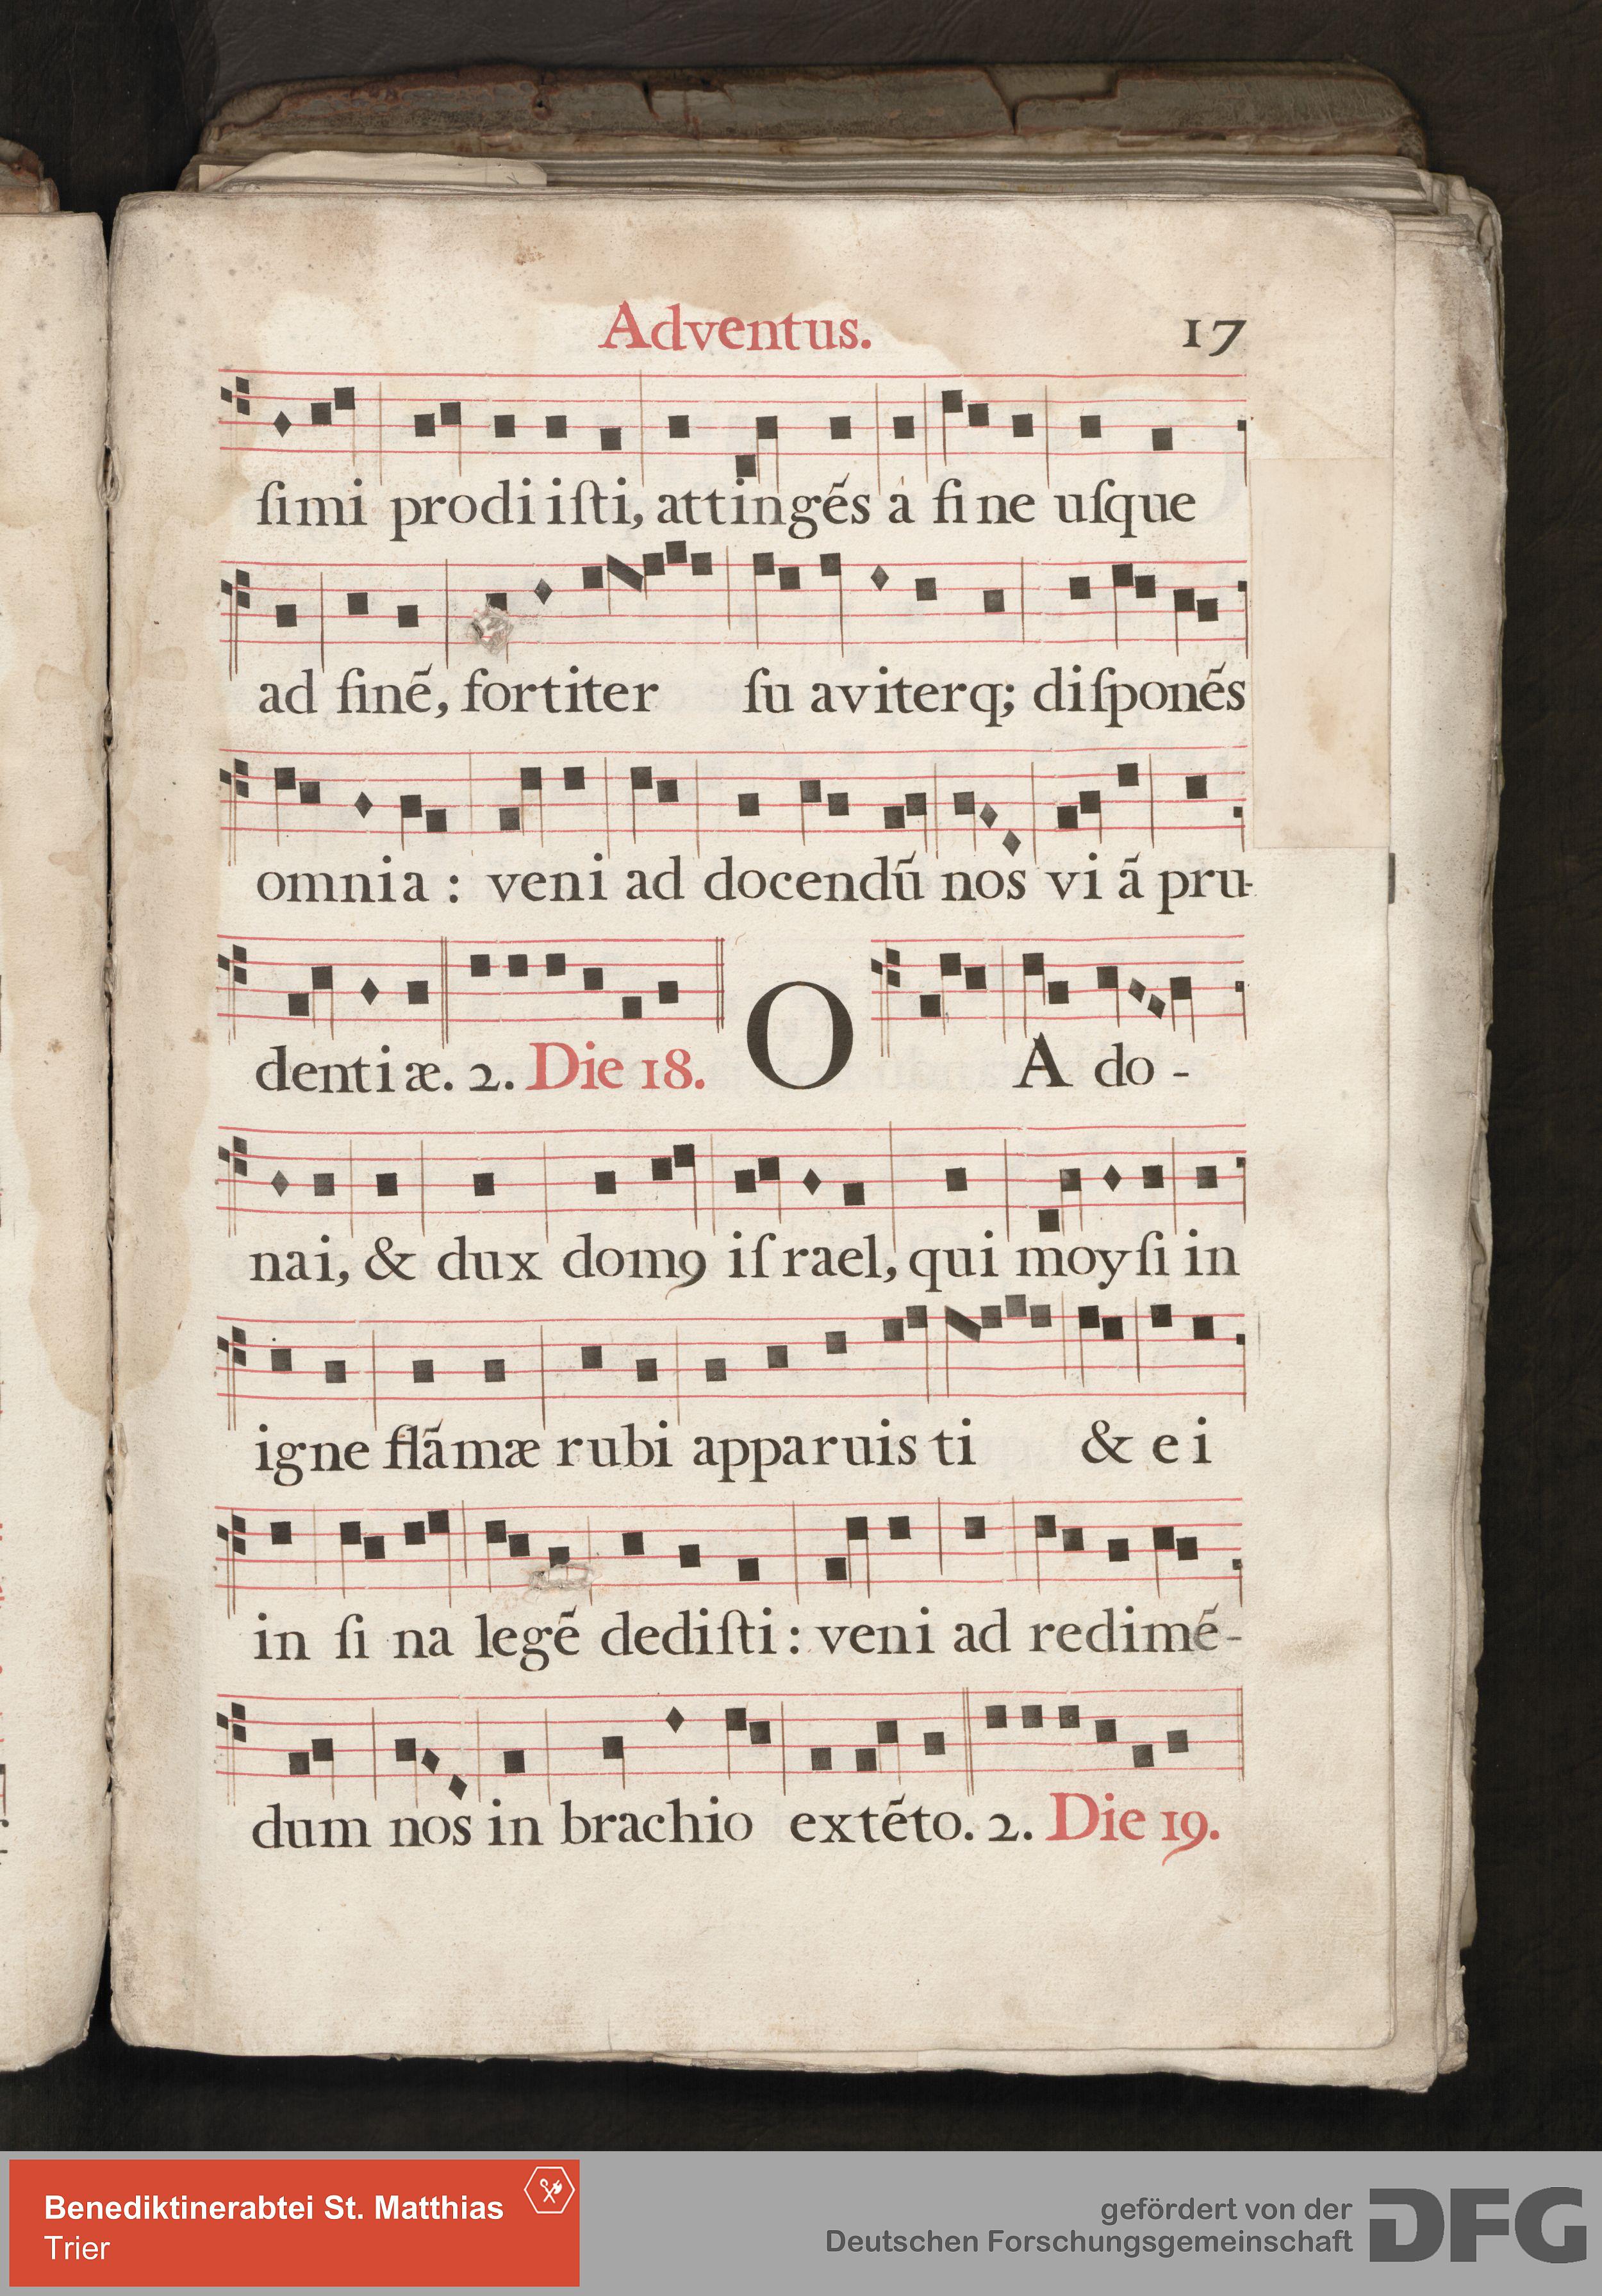 Adventus. 17
ſimi prodiiſti, attingẽs à fine uſque
ad finẽ, fortiter ſu aviterq; diſponẽs
omnia : veni ad docendũ nos vi ã pru-
dentiæ. 2. Die 18. O A do -
nai, & dux domꝯ iſ rael, qui moyſi in
igne flãmæ rubi apparuis ti & e i
in ſi na legẽ dediſti : veni ad redimẽ-
dum nos in brachio extẽto. 2. Die 19.
Benediktinerabtei St. Matthias
Trier
gefördert von der
Deutschen Forschungsgemeinschaft
DFG